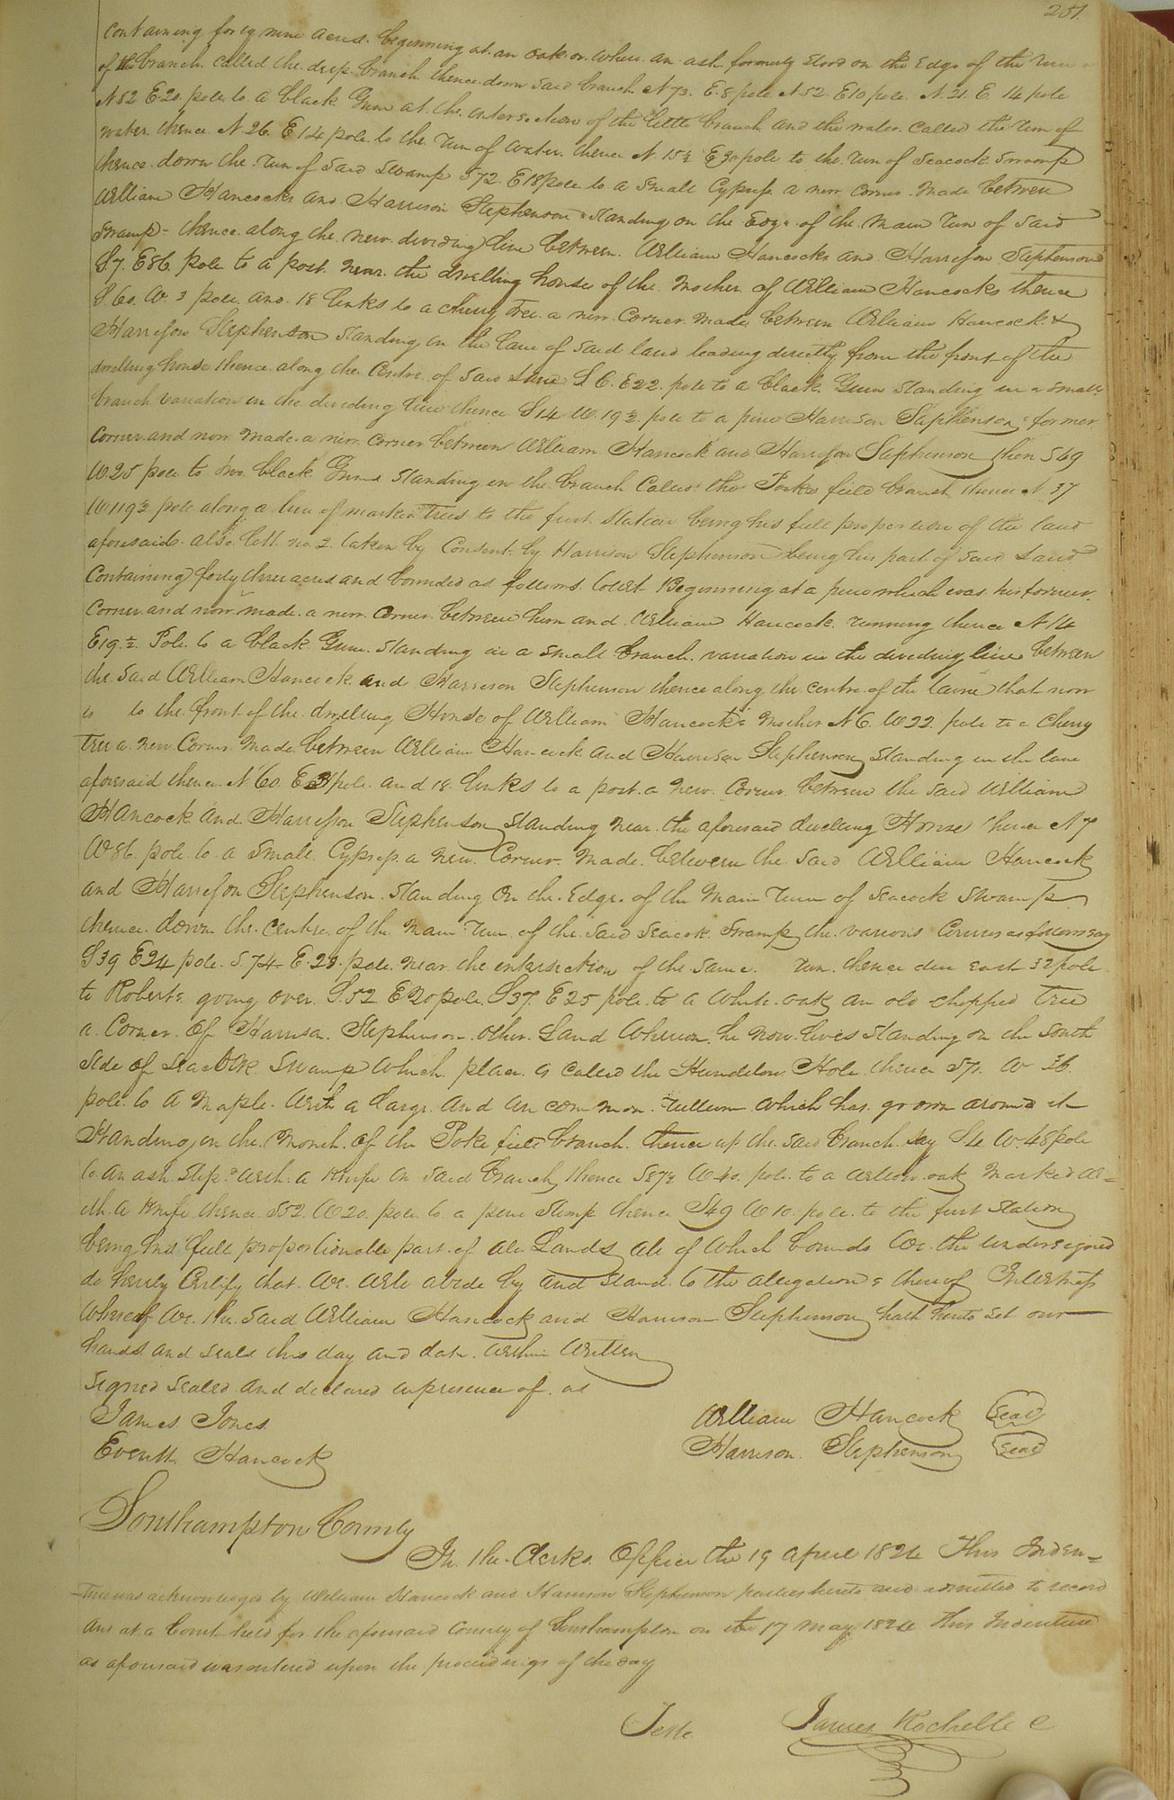 251.
containing forty nine acres. beginning at an oak or where an ash formerly stood on the Edge of the run
of the branch called the deep branch thence down said branch N 73. E. 8 pole N 52 E 10 pole. N. 21. E 14 pole
N 52 E 20. pole to a black Gum at the intersection of the little branch and the water called the run of
water. thence N. 26. E 14 pole. to the run of water. thence N 15½ E 30 pole to the run of Seacock Swamp
thence down the run of said swamp S 72. E 18 pole to a small Cypress a new corner made between
William Hancocks and Harrison Stephenson standing on the Edge of the Main run of said
Swamp - thence along the new dividing line between William Hancocks and Harrisson Stephenson
S 7. E 86 pole to a post near the dwelling house of the Mother of William Hancocks thence
S 60. W. 3 pole and 18 links to a cherry tree a new Corner made between William Hancock &
Harrisson Stephenson standing in the lane of said land leading directly from the front of the
dwelling house thence along the Centre of said Lane S 6. E 22. pole to a black Gum standing in a small
branch variation in the dividing line thence S 14 W. 19½ pole to a pine Harrison Stephensons former
Corner and now made a new corner between William Hancock and Harrisson Stephenson then S 69
W. 25 pole to two black Gums standing in the branch Called the Poke field branch thence N 37
W 119½ pole along a line of marked trees to the first Station being his full proportion of the land
aforesaid. also Lott no 2 taken by Consent by Harrison Stephenson being his part of said Land
Containing forty three acres and bounded as follows (to wit) Beginning at a pine which was his former
Corner and now made a new Corner between him and William Hancock running thence N 14
E 19½ Pole to a black Gum standing in a small branch variation in the dividing line between
the said William Hancock and Harrison Stephenson thence along the centre of the lane that now
is to the front of the dwelling House of William Hancock's Mother N 6. W 22. pole to a Cherry
tree a new Corner made between William Hancock and Harrison Stephenson standing in the lane
aforesaid thence N 60. E 3 pole and 18 links to a post a new Corner between the said William
Hancock and Harrisson Stephenson standing near the aforesaid dwelling House thence N 7
W 86. pole to a small Cypress a new Corner made between the said William Hancock
and Harrisson Stephenson standing on the Edge of the main run of Seacock Swamp
thence down the centre of the main run of the said Seacock Swamp the various Courses as follows say
S 39 E 24 pole. S 74. E. 28. pole near the intersection of the same run. thence due east 32 pole
to Roberts going over. S. 52 E 20 pole S 37. E 25 pole to a white oak an old chopped tree
a Corner of Harrison Stephenson other Land whereon he now lives standing on the South
side of Seacock Swamp which place is called the Hole thence S 7. W 36
pole to a Maple with a large and uncommon which has grown around it
Standing in the Mouth of the Poke field branch thence up the said branch say S 4 W. 48 pole
to an ash with a knife in said branch thence S 87½ W 40. pole to a willow oak marked wi=
th a knife thence S 52. W 20. pole to a pine Stump thence S 49 W 10. pole to the first Station
being his full proportionable part of all Lands all of which bounds We the undersigned
do hereby Certify that We will abide by and stand to the allegations thereof In Witness
whereof We the said William Hancock and Harrison Stephenson hath hereto set our
hands and seals this day and date within Written
Signed sealed and declared in presence of us
James Jones William Hancock Seal
Everitt Hancock Harrison Stephenson Seal
Southampton County
In the Clerks Office the 19 April 1824 This Inden=
ture was acknowledged by William Hancock and Harrison Stephenson parties hereto and admitted to record
and at a Court held for the aforesaid County of Southampton on the 17 May 1824 this Indenture
as aforesaid was entered upon the proceedings of the day
Teste James Rochelle C